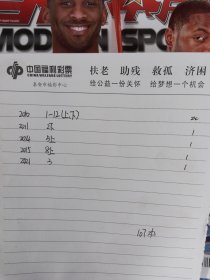 MODERN SPO
中国福利彩票
CHINA WELFARE LOTTERY
扶老 助残 救孤 济困
给公益一份关怀 给梦想一个机会
2010 1-12(上下)
2011 2下 1
2014 5上 1
2015 8上 1
2021 3 1
107本